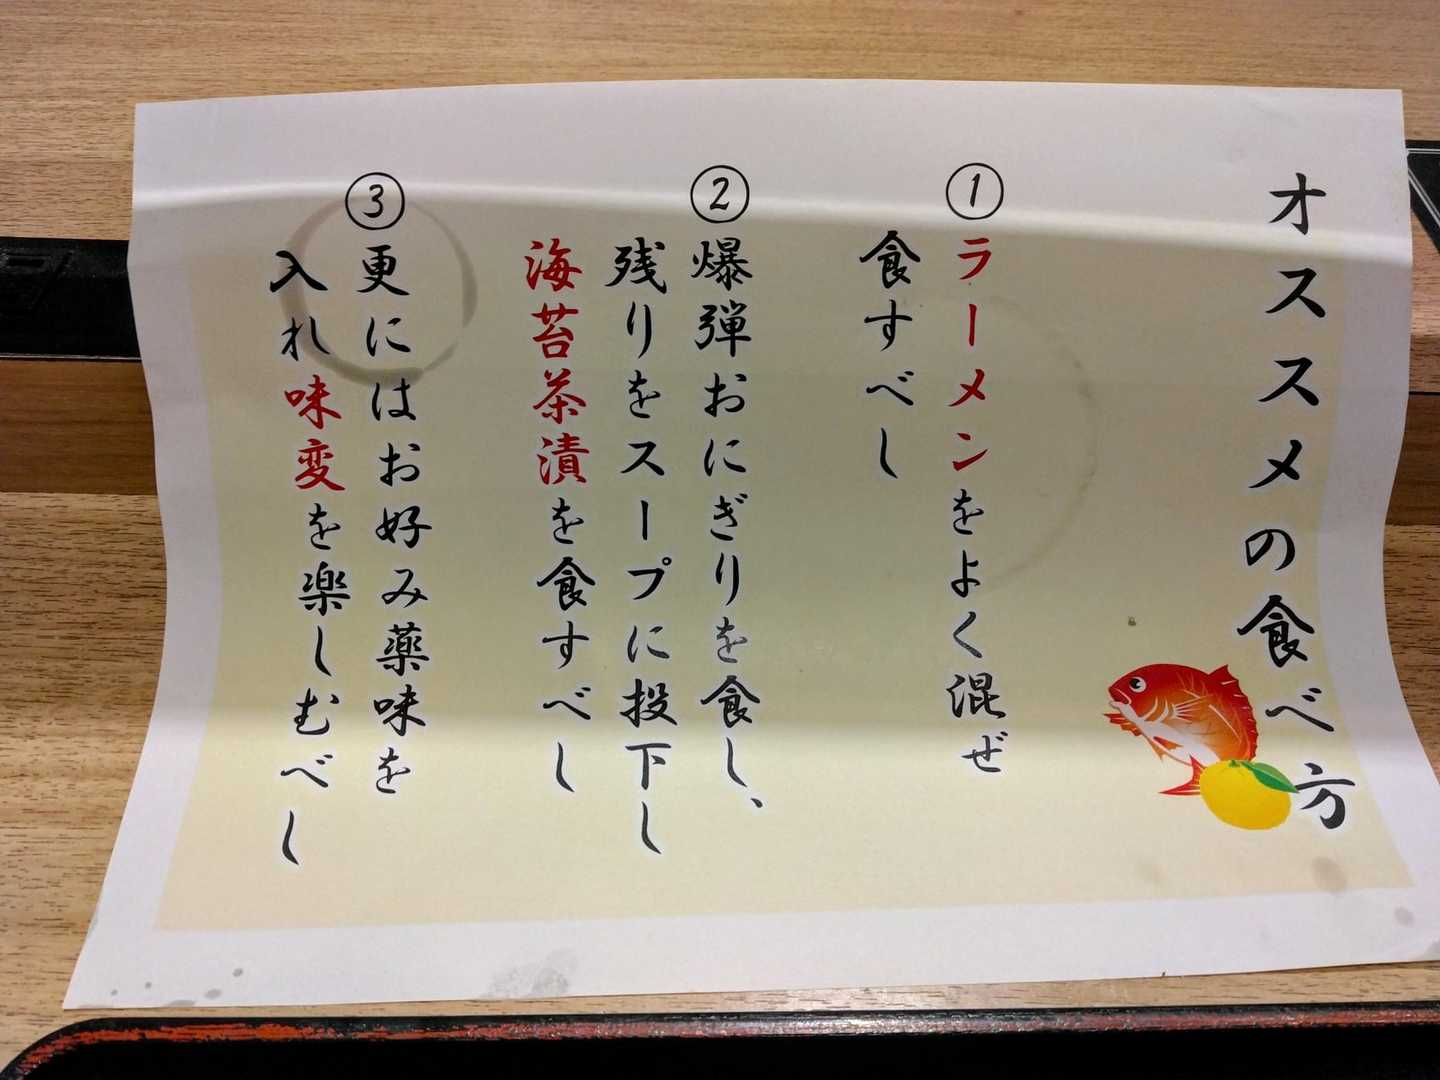 オススメの食べ方
①ラーメンをよく混ぜ
食すべし
②爆弾おにぎりを食し、
残りをスープに投下し
海苔茶漬を食すべし
③更にはお好み薬味を
入れ味変を楽しむべし